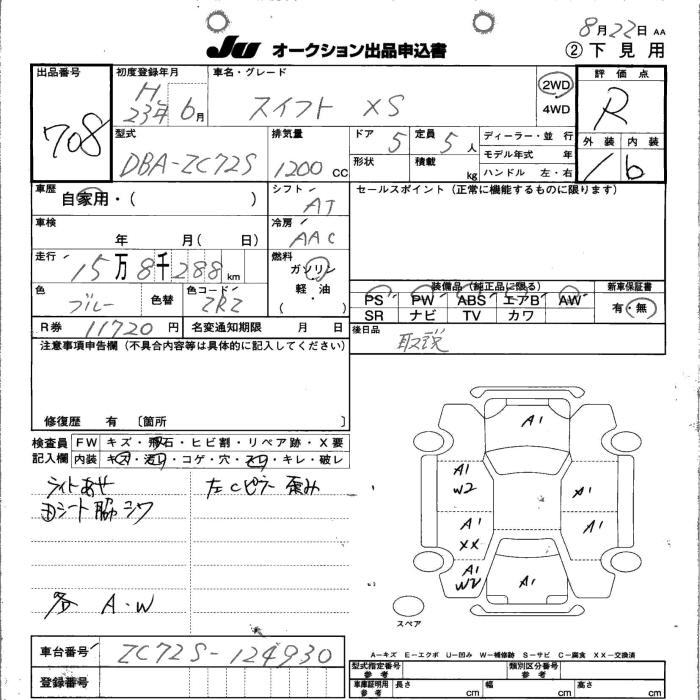 8月22日 AA
JU オークション出品申込書 ② 下見用
出品番号 708
初度登録年月 H23年6月
車名・グレード スイフト XS
2WD
4WD
評価点 R
外装 内装
1 b
型式 DBA-ZC72S
排気量 1200 CC
ドア 5 定員 5人
形状 積載 kg
ディーラー・並行
モデル年式 年
ハンドル 左・右
車歴 自家用・( )
シフト AT
セールスポイント(正常に機能するものに限ります)
車検 年 月(日)
冷房 AAC
走行 15万8千288km
燃料 ガソリン・軽油・( )
色 ブルー 色替 色コード ZRZ
装備品(純正品に限る)
PS PW ABS エアB AW
SR ナビ TV カワ
新車保証書
有・無
R券 11720円 名変通知期限 月 日
後日品 取説
注意事項申告欄(不具合内容等は具体的に記入してください)
修復歴 有 〔箇所 〕
検査員記入欄
FW キズ・飛石・ヒビ割・リペア跡・X要
内装 キズ・汚れ・コゲ・穴・スレ・キレ・破レ
ライトあせ 左Cピラー歪み
シート脇シワ
各 A・W
A1
A1 W2
A1
A1 XX
A1
A1 W2
A1
スペア
A-キズ E-エクボ U-凹み W-補修跡 S-サビ C-腐食 XX-交換済
車台番号 ZC72S-124930
登録番号
型式指定番号 参考 類別区分番号 参考
車庫証明用 参考 長さ cm 幅 cm 高さ cm